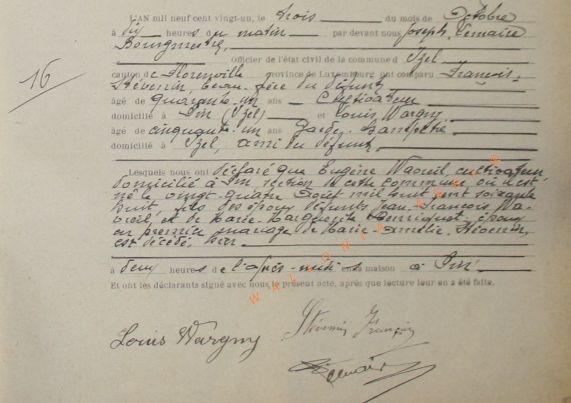 L'AN mil neuf cent vingt-un, le trois du mois de Octobre
à dix heures du matin par devant nous Joseph Lemaire
Bourgmestre, Officier de l'état civil de la commune d'Izel
canton de Florenville province de Luxembourg ont comparu François
Stévenin, beau-frère du défunt
16
âgé de quarante-un ans Cultivateur
domicilié à Pin (Izel) et Louis Wargny
âgé de cinquante-un ans Garde champêtre
domicilié à Izel, ami du défunt
Lesquels nous ont déclaré que Eugène cultivateur
domicilié à Pin section de cette commune où il est
né le vingt-quatre mil huit cent soixante
huit, fils des époux défunts Jean-François
et de Marie-Marguerite Henriquet, époux
en premier mariage de Marie-Amélie Stévenin,
est décédé hier
à deux heures de l'après-midi en sa maison à Pin
Et ont les déclarants signé avec nous le présent acte, après que lecture leur en a été faite.
Louis Wargny Stévenin François
Lemaire